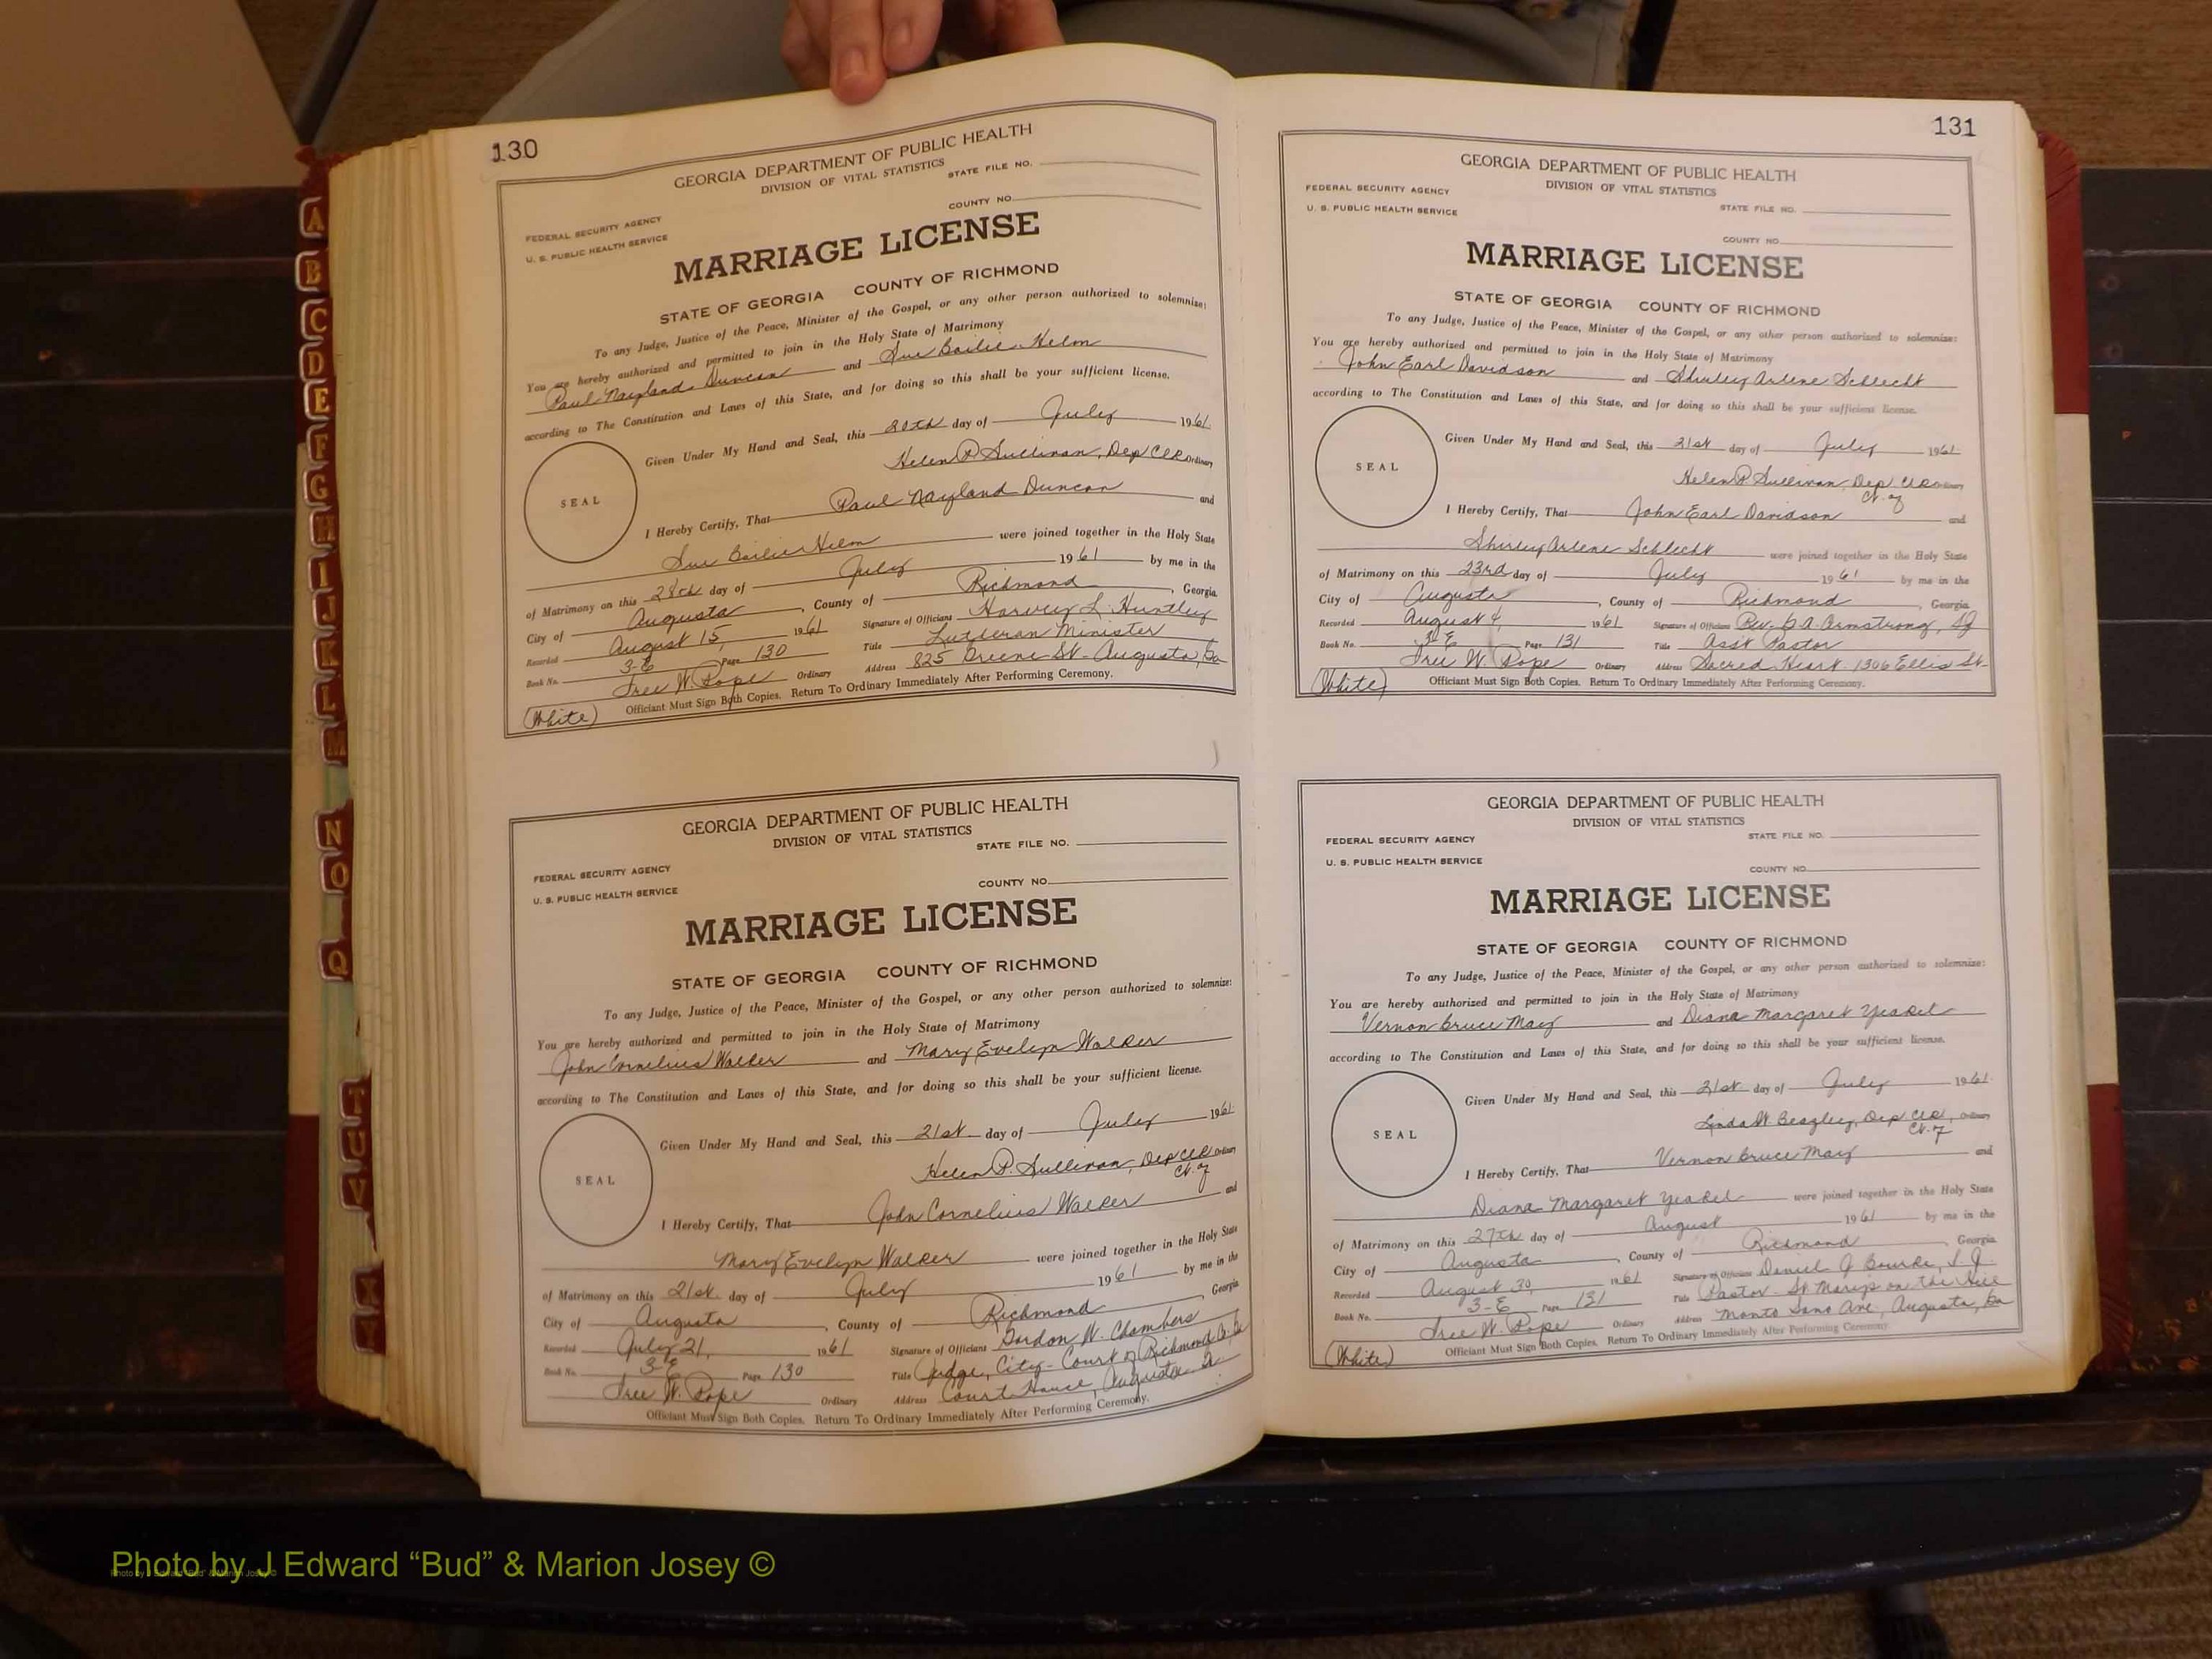 130
GEORGIA DEPARTMENT OF PUBLIC HEALTH
DIVISION OF VITAL STATISTICS
STATE FILE NO.
COUNTY NO.
FEDERAL SECURITY AGENCY
U. S. PUBLIC HEALTH SERVICE
MARRIAGE LICENSE
STATE OF GEORGIA COUNTY OF RICHMOND
To any Judge, Justice of the Peace, Minister of the Gospel, or any other person authorized to solemnize:
You are hereby authorized and permitted to join in the Holy State of Matrimony
Paul Nayland Duncan and Sue Bailie Helm
according to The Constitution and Laws of this State, and for doing so this shall be your sufficient license.
Given Under My Hand and Seal, this 20th day of July 1961
Helen P. Sullivan, Dep Clk Ordinary
SEAL
I Hereby Certify, That Paul Nayland Duncan and
Sue Bailie Helm were joined together in the Holy State
of Matrimony on this 28th day of July 1961 by me in the
City of Augusta, County of Richmond, Georgia.
Recorded August 15, 1961 Signature of Officiant Harvey L. Huntley
Book No. 3-E Page 130 Title Lutheran Minister
Tree W. Pope Ordinary Address 825 Greene St - Augusta, Ga
Officiant Must Sign Both Copies. Return To Ordinary Immediately After Performing Ceremony.
(White)
GEORGIA DEPARTMENT OF PUBLIC HEALTH
DIVISION OF VITAL STATISTICS
STATE FILE NO.
FEDERAL SECURITY AGENCY
U. S. PUBLIC HEALTH SERVICE
COUNTY NO.
MARRIAGE LICENSE
STATE OF GEORGIA COUNTY OF RICHMOND
To any Judge, Justice of the Peace, Minister of the Gospel, or any other person authorized to solemnize:
You are hereby authorized and permitted to join in the Holy State of Matrimony
John Cornelius Walker and Mary Evelyn Walker
according to The Constitution and Laws of this State, and for doing so this shall be your sufficient license.
Given Under My Hand and Seal, this 21st day of July 1961
Helen P. Sullivan, Dep Clk Ordinary
Ct. of
SEAL
I Hereby Certify, That John Cornelius Walker and
Mary Evelyn Walker were joined together in the Holy State
of Matrimony on this 21st day of July 1961 by me in the
City of Augusta, County of Richmond Georgia
Recorded July 21, 1961 Signature of Officiant Gordon W. Chambers
Book No. 3-E Page 130 Title Judge, City-Court of Richmond Co. Ga
Tree W. Pope Ordinary Address Court House, Augusta Ga
Officiant Must Sign Both Copies. Return To Ordinary Immediately After Performing Ceremony.
131
GEORGIA DEPARTMENT OF PUBLIC HEALTH
DIVISION OF VITAL STATISTICS
FEDERAL SECURITY AGENCY
U. S. PUBLIC HEALTH SERVICE
STATE FILE NO.
COUNTY NO.
MARRIAGE LICENSE
STATE OF GEORGIA COUNTY OF RICHMOND
To any Judge, Justice of the Peace, Minister of the Gospel, or any other person authorized to solemnize:
You are hereby authorized and permitted to join in the Holy State of Matrimony
John Earl Davidson and Shirley Arlene Schlecht
according to The Constitution and Laws of this State, and for doing so this shall be your sufficient license.
Given Under My Hand and Seal, this 21st day of July 1961
Helen P. Sullivan, Dep. Clk Ordinary
Ct. of
SEAL
I Hereby Certify, That John Earl Davidson and
Shirley Arlene Schlecht were joined together in the Holy State
of Matrimony on this 23rd day of July 1961 by me in the
City of Augusta, County of Richmond, Georgia
Recorded August 4, 1961 Signature of Officiant Rev. G. A. Armstrong, SJ
Book No. 3-E Page 131 Title Ass't Pastor
Tree W. Pope Ordinary Address Sacred Heart 1306 Ellis St-
Officiant Must Sign Both Copies. Return To Ordinary Immediately After Performing Ceremony.
(White)
GEORGIA DEPARTMENT OF PUBLIC HEALTH
DIVISION OF VITAL STATISTICS
FEDERAL SECURITY AGENCY
U. S. PUBLIC HEALTH SERVICE
STATE FILE NO.
COUNTY NO.
MARRIAGE LICENSE
STATE OF GEORGIA COUNTY OF RICHMOND
To any Judge, Justice of the Peace, Minister of the Gospel, or any other person authorized to solemnize:
You are hereby authorized and permitted to join in the Holy State of Matrimony
Vernon Bruce May and Diana Margaret Yeakel
according to The Constitution and Laws of this State, and for doing so this shall be your sufficient license.
Given Under My Hand and Seal, this 21st day of July 1961
Linda W. Beazley, Dep Clk, Ordinary
Ct. of
SEAL
I Hereby Certify, That Vernon Bruce May and
Diana Margaret Yeakel were joined together in the Holy State
of Matrimony on this 27th day of August 1961 by me in the
City of Augusta, County of Richmond, Georgia
Recorded August 30, 1961 Signature of Officiant Daniel J Bourke, S. J.
Book No. 3-E Page 131 Title Pastor- St Marys on the Hill
Tree W. Pope Ordinary Address Monte Sano Ave, Augusta, Ga
Officiant Must Sign Both Copies. Return To Ordinary Immediately After Performing Ceremony
(White)
A
B
C
D
E
F
G
H
I
J
K
L
M
N
O
Q
T
U
V
Photo by J Edward “Bud” & Marion Josey ©
Photo by J Edward "Bud" & Marion Josey ©